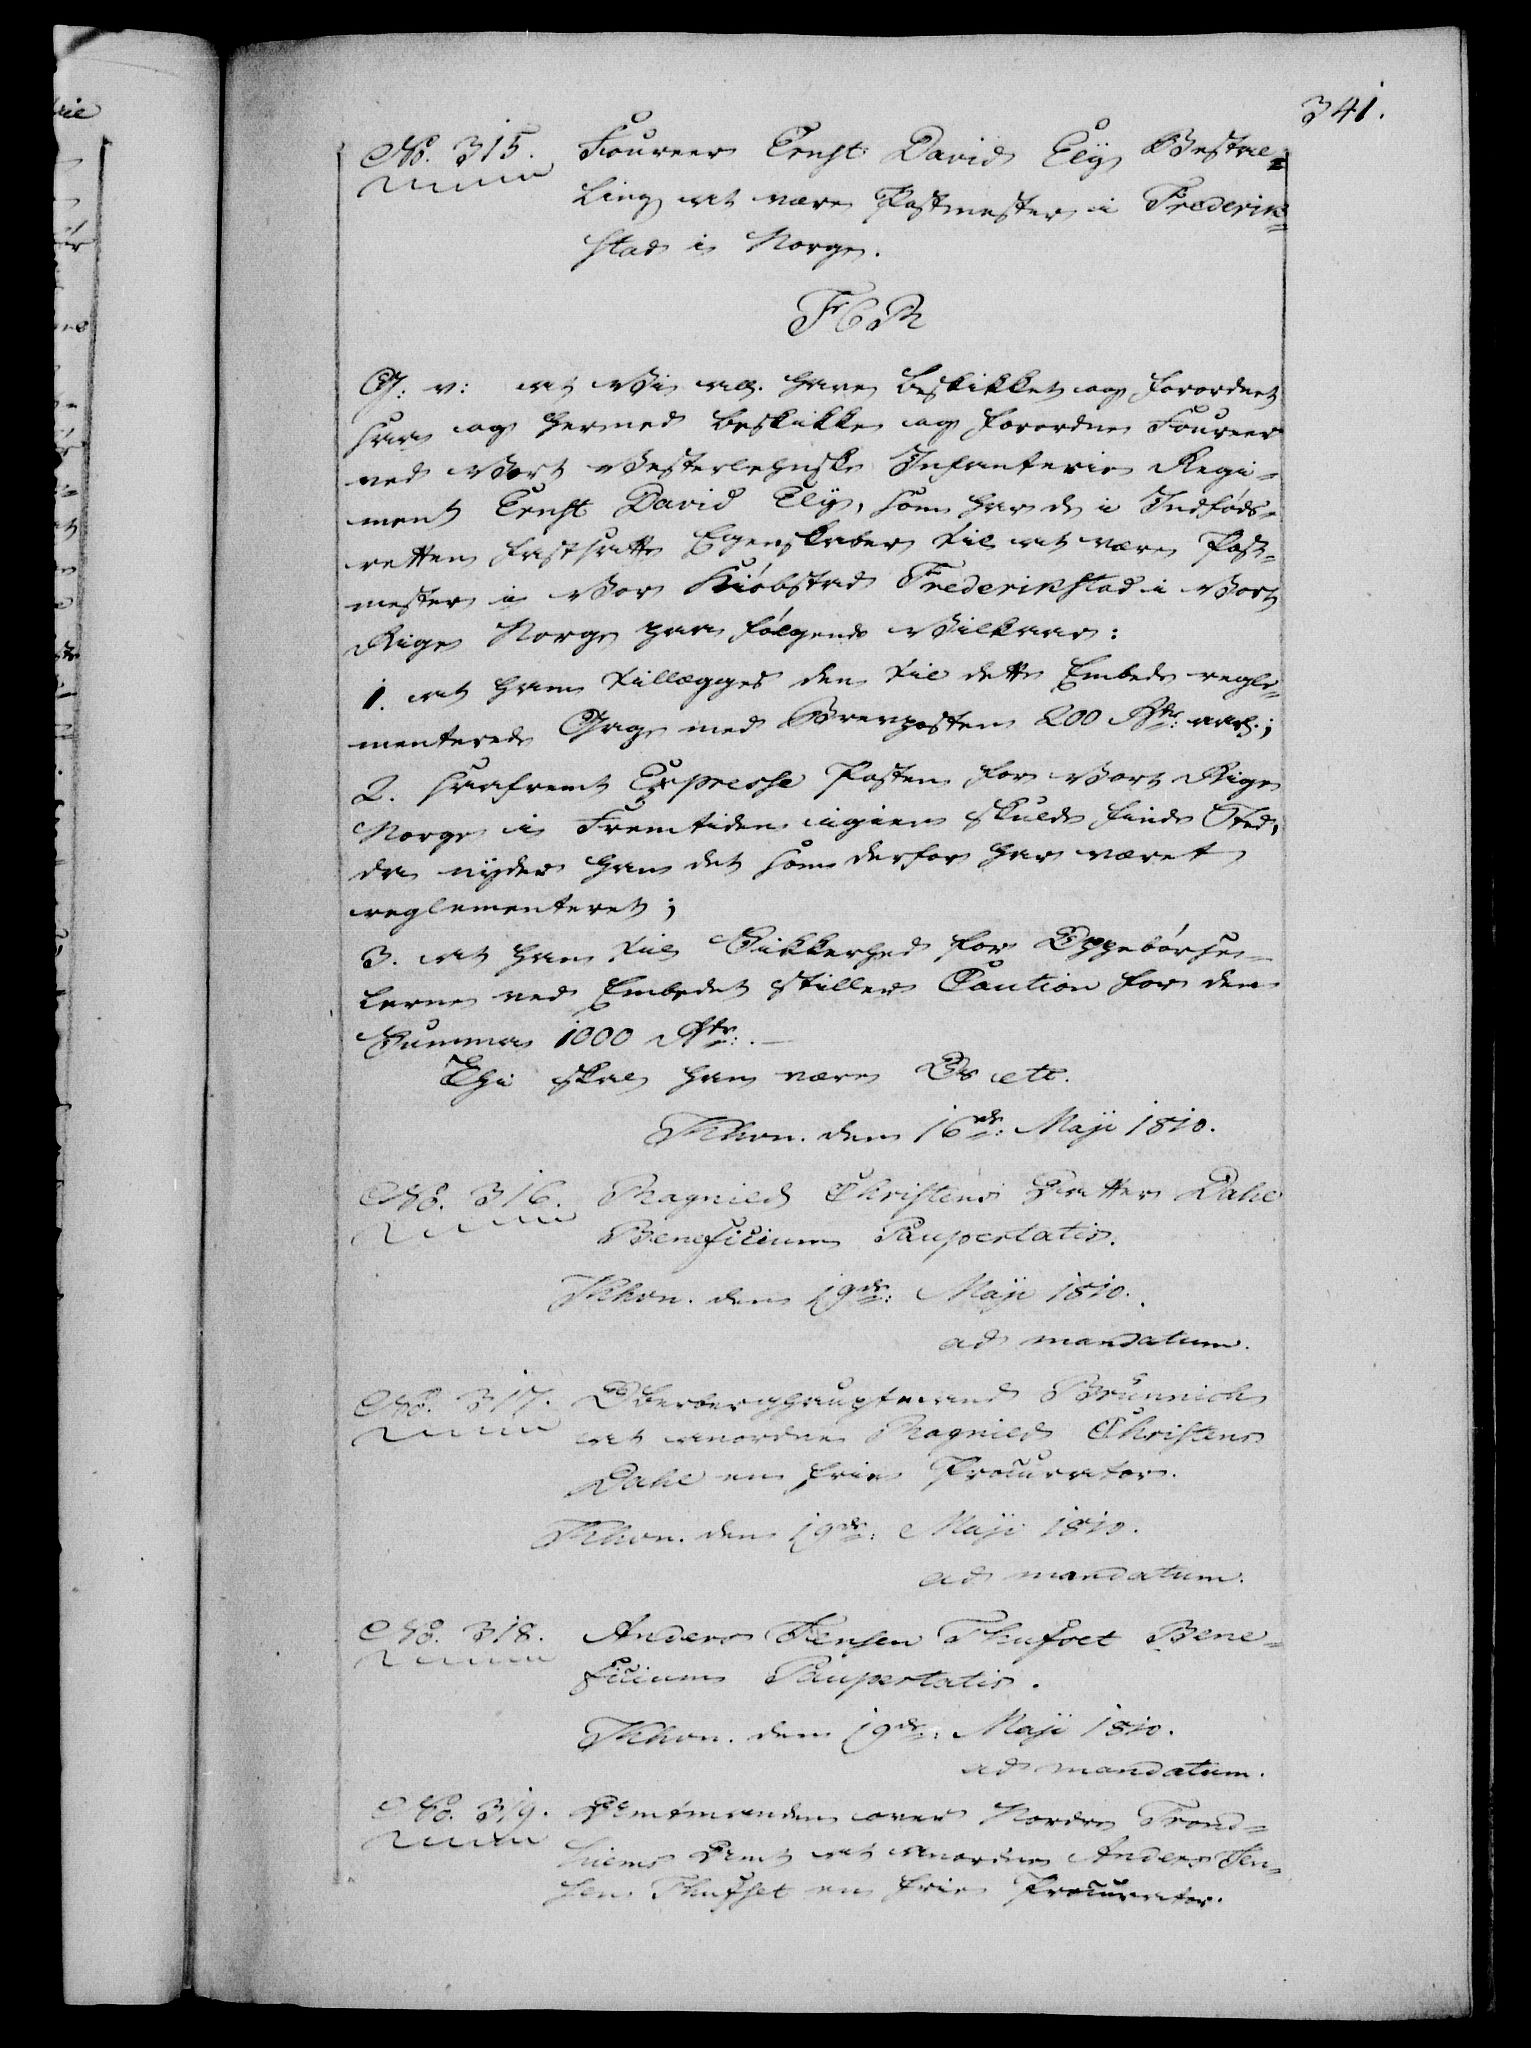 341.
No. 315. Foureer Ernst David Ely Bestal-
ling at være Postmester i Frederik-
stad i Norge.
F 6 R
G. v: at Vi all. have beskikket og forordnet
saa og hermed beskikke og forordne Foureer
ved Vort Vesterlehnske Infanterie Regi-
ment Ernst David Ely, som har de i Indföds-
retten fastsatte Egenskaber til at være Post-
mester i Vor Kiöbstad Frederikstad i Vort
Rige Norge paa fölgende Vilkaar:
1. at ham tillægges den til dette Embede regle-
menterede Gage med Brevposten 200 Rdr: aarl.;
2. saafremt Expresse Posten for Vort Rige
Norge i Fremtiden igien skulde finde Sted,
da nyder han det som derfor har været
reglementeret;
3. at han til Sikkerhed for Oppebörse-
lerne ved Embedet stiller Caution for den
Summa 1000 Rdr:. —
Thi skal han være Os etc.
Khvn. den 16de: Maji 1810.
No. 316. Ragnild Christens Datter Dahl
Beneficium Paupertatis.
Khvn. den 19de: Maji 1810.
ad mandatum.
No. 317. Oberberghauptmand Brünnich
at anordne Ragnild Christens
Dahl en frie Procurator.
Khvn. den 19de: Maji 1810.
ad mandatum.
No. 318. Anders Jensen Thufset Bene-
ficium Paupertatis.
Khvn. den 19de: Maji 1810.
ad mandatum.
No. 319. Amtmanden over Nordre Trond-
hiems Amt at anordne Anders Jen-
sen Thufset en frie Procurator.